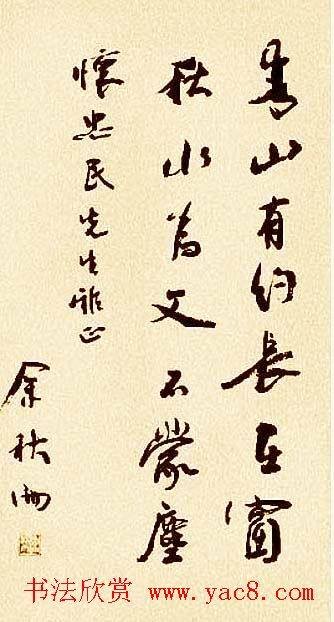 青山有約長在窗
秋水為文不蒙塵
懷忠民先生雅正
余秋雨
书法欣赏 www.yac8.com